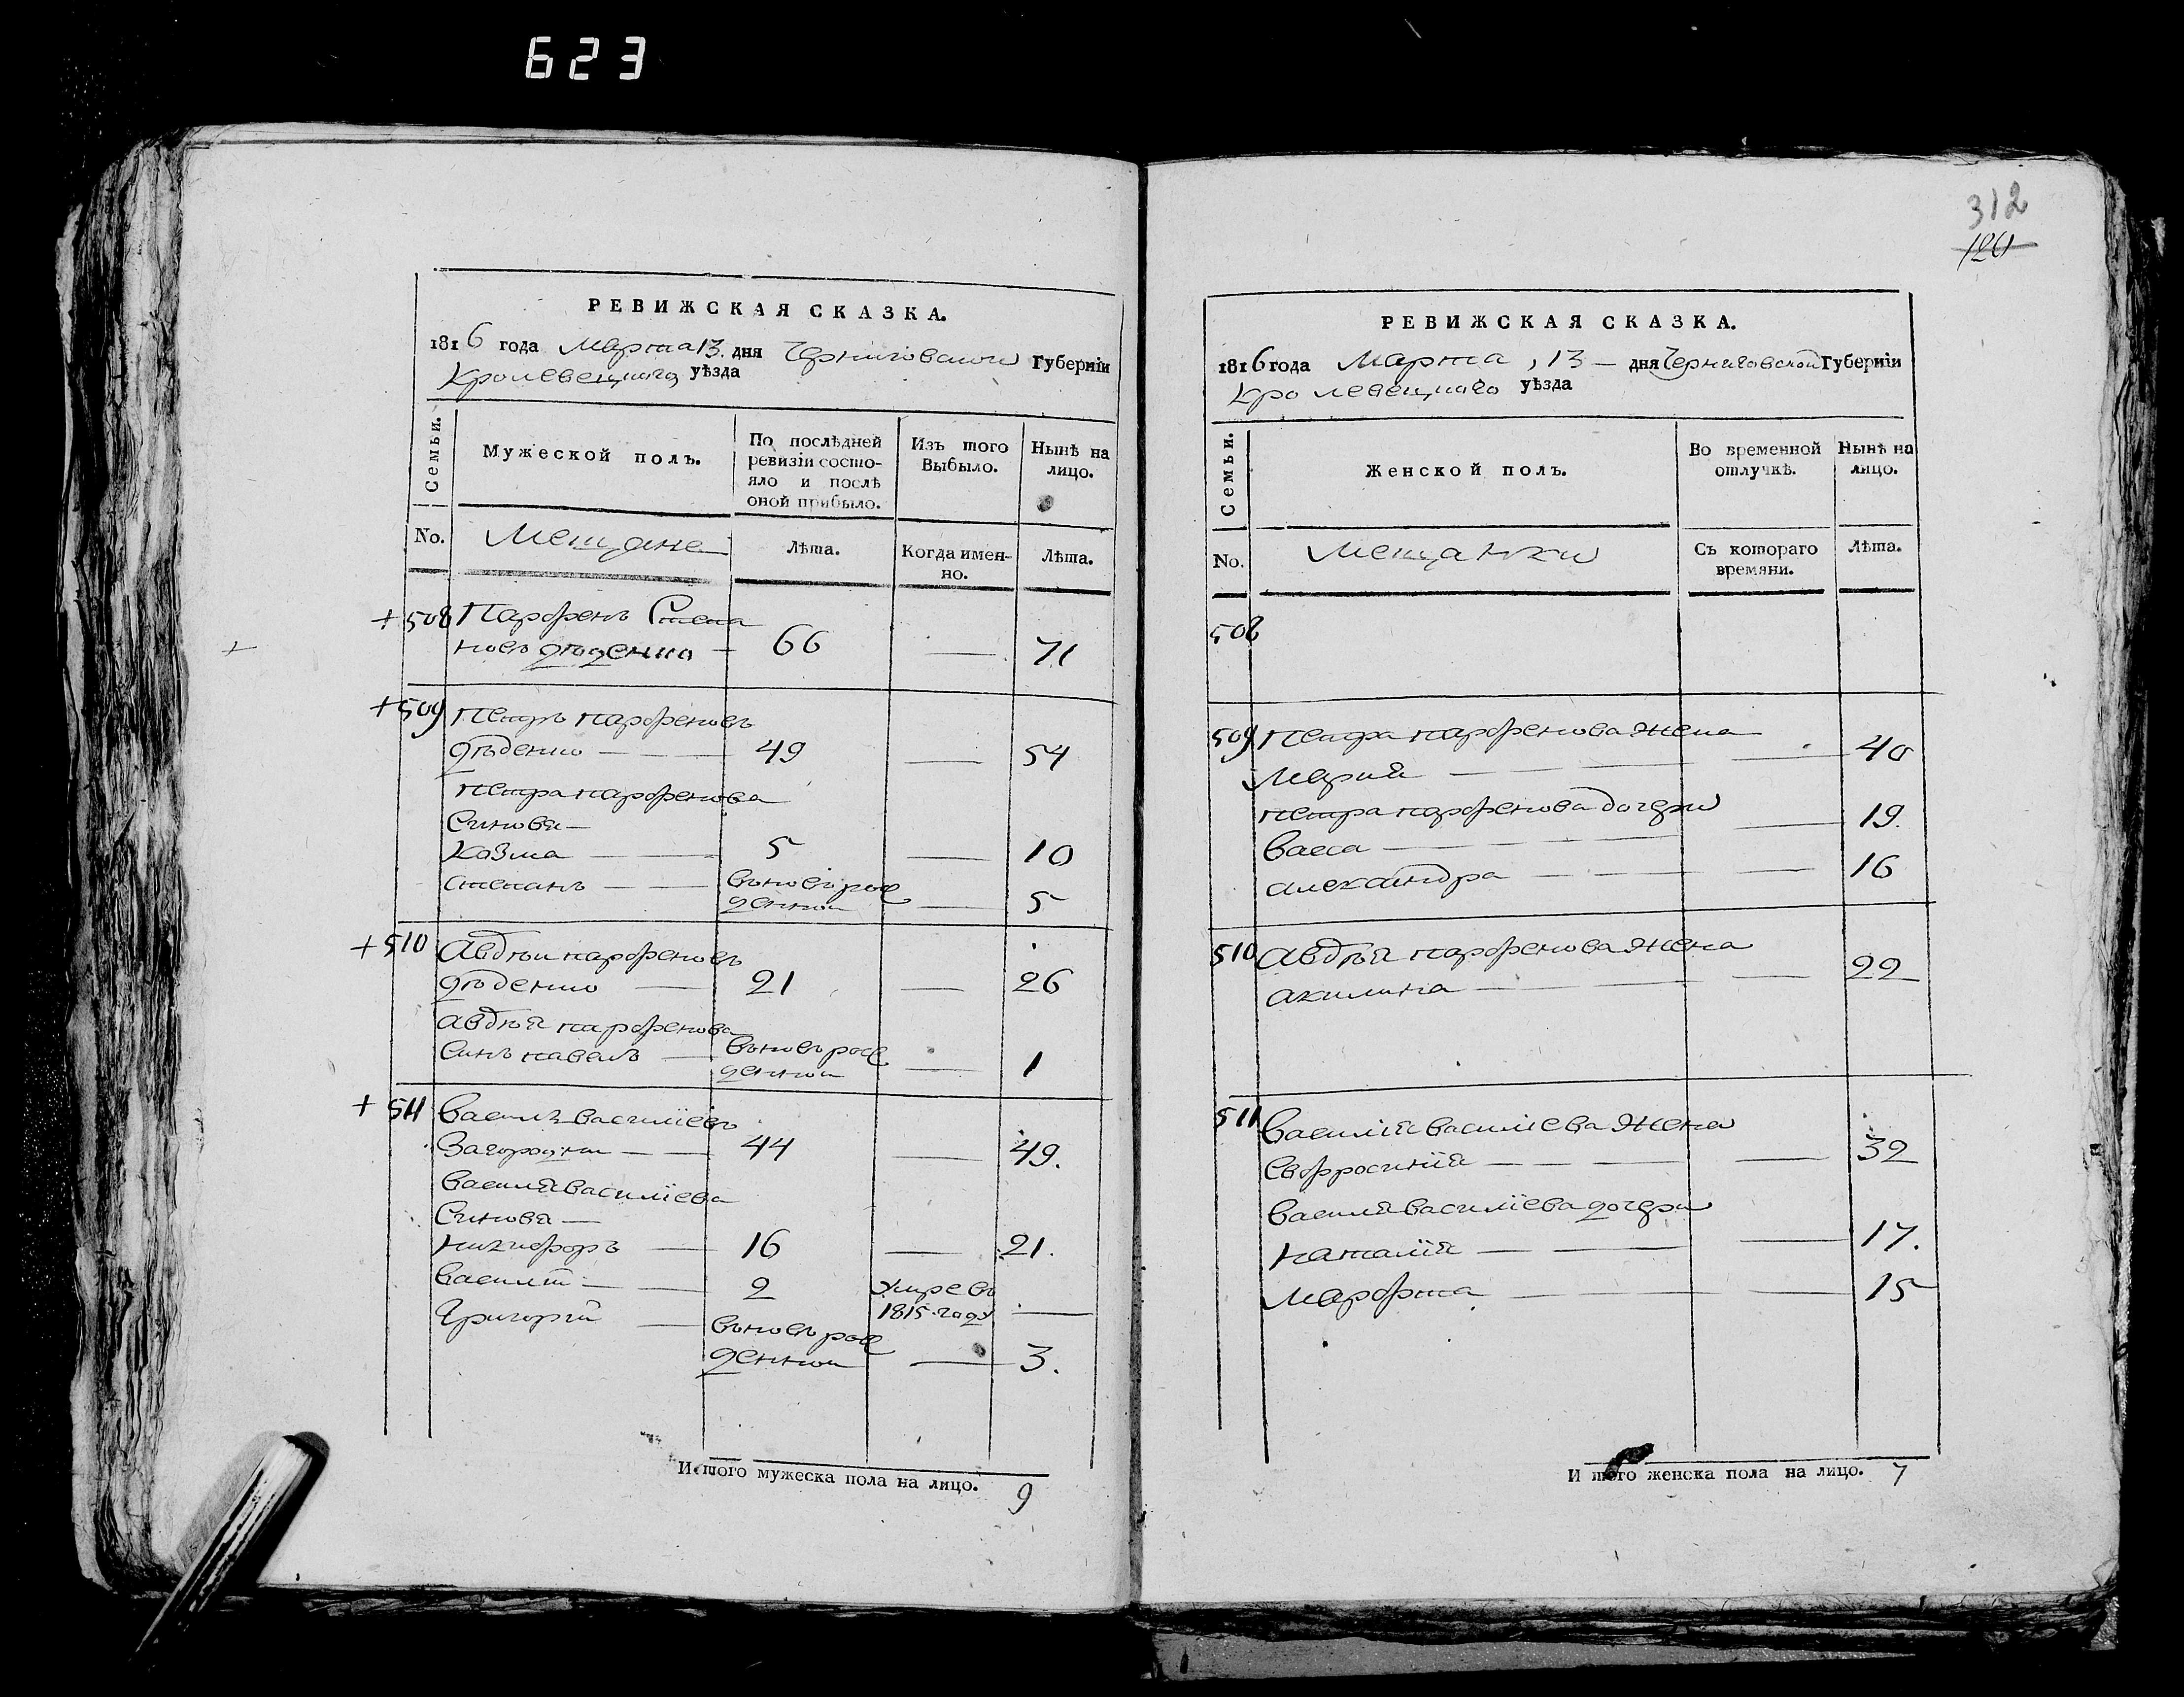 623
312
120
РЕВИЖСКАЯ СКАЗКА.
1816 года Марта 13. дня Черниговской Губернїи
Кролевецкаго уѣзда
Семьи.
Мужеской полъ.
По послѣдней
ревизїи состо-
яло и послѣ
оной прибыло.
Изъ того
Выбыло.
Нынѣ на
лицо.
No.
Мещане
Лѣта.
Когда имен-
но.
Лѣта.
+ 508 Парфенъ Степа
новъ Дѣденко — 66 — 71
+ 509 Петръ Парфеновъ
Дѣденко — 49 — 54
Петра Парфенова
Синовя —
Козма — 5 — 10
Степанъ — вьновъ рож
денной — 5
+ 510 Авдѣи Парфеновъ
Дѣденко — 21 — 26
Авдѣя Парфенова
Синъ Павелъ — вьновъ рож
денной — 1
+ 511 Василь Василїевъ
Загородни — 44 — 49.
Василя Василїева
Синовя —
Никифоръ — 16 — 21.
Василій — 2 умре въ
1815 году —
Григорій — вьновъ рож
денной — 3.
Итого мужеска пола на лицо. 9
РЕВИЖСКАЯ СКАЗКА.
1816 года Марта, 13 — дня Черниговской Губернїи
Кролевецкаго уѣзда
Семьи.
Женской полъ.
Во временной
отлучкѣ.
Нынѣ на
лицо.
No.
Мещанки
Съ котораго
времяни.
Лѣта.
508
509 Петра Парфенова Жена
Мария — 40
Петра Парфенова дочери
Васса — 19.
Александра — 16
510 Авдѣя Парфенова Жена
Акилина — 22
511 Василїя Василїева Жена
Евфросинїя — 32
Василя Василїева дочери
Наталїя — 17.
Марфта — 15
Итого женска пола на лицо. 7